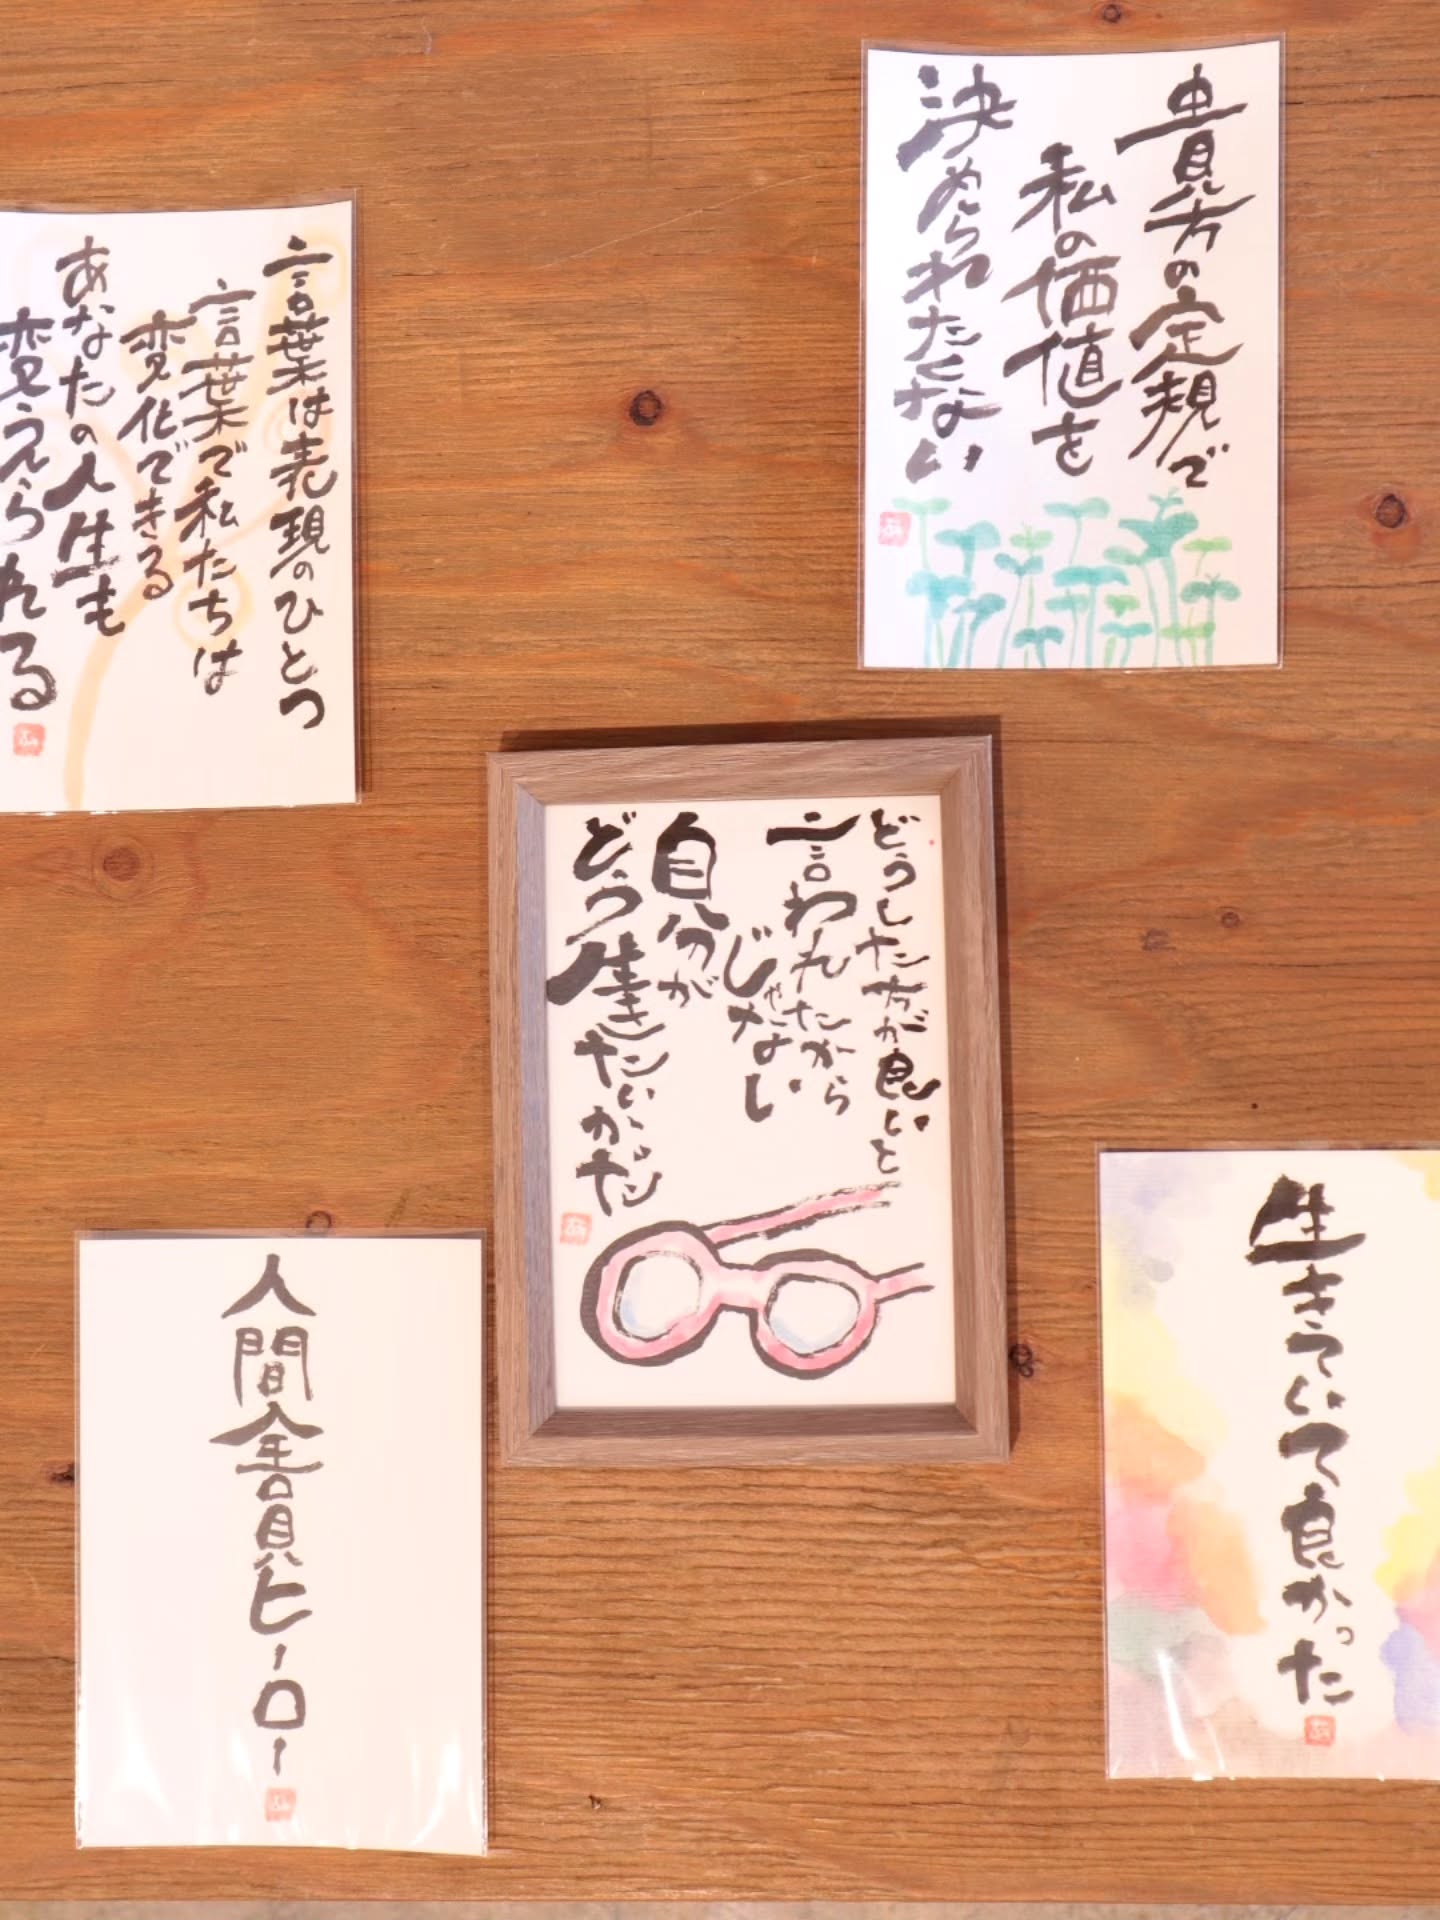 貴方の定規で
私の価値を
決められたくない
言葉は表現のひとつ
言葉で私たちは
変化できる
あなたの人生も
変えられる
どうした方が良いと
言われたから
じゃない
自分が
どう生きたいかだ
生きていて良かった
人間全員ヒーロー